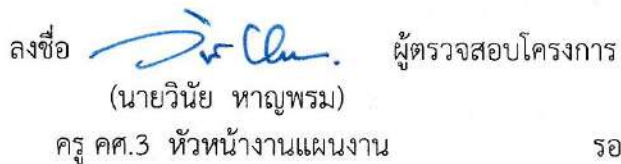 ลงชื่อ ผู้ตรวจสอบโครงการ
(นายวินัย หาญพรม)
ครู คศ.3 หัวหน้างานแผนงาน รอ